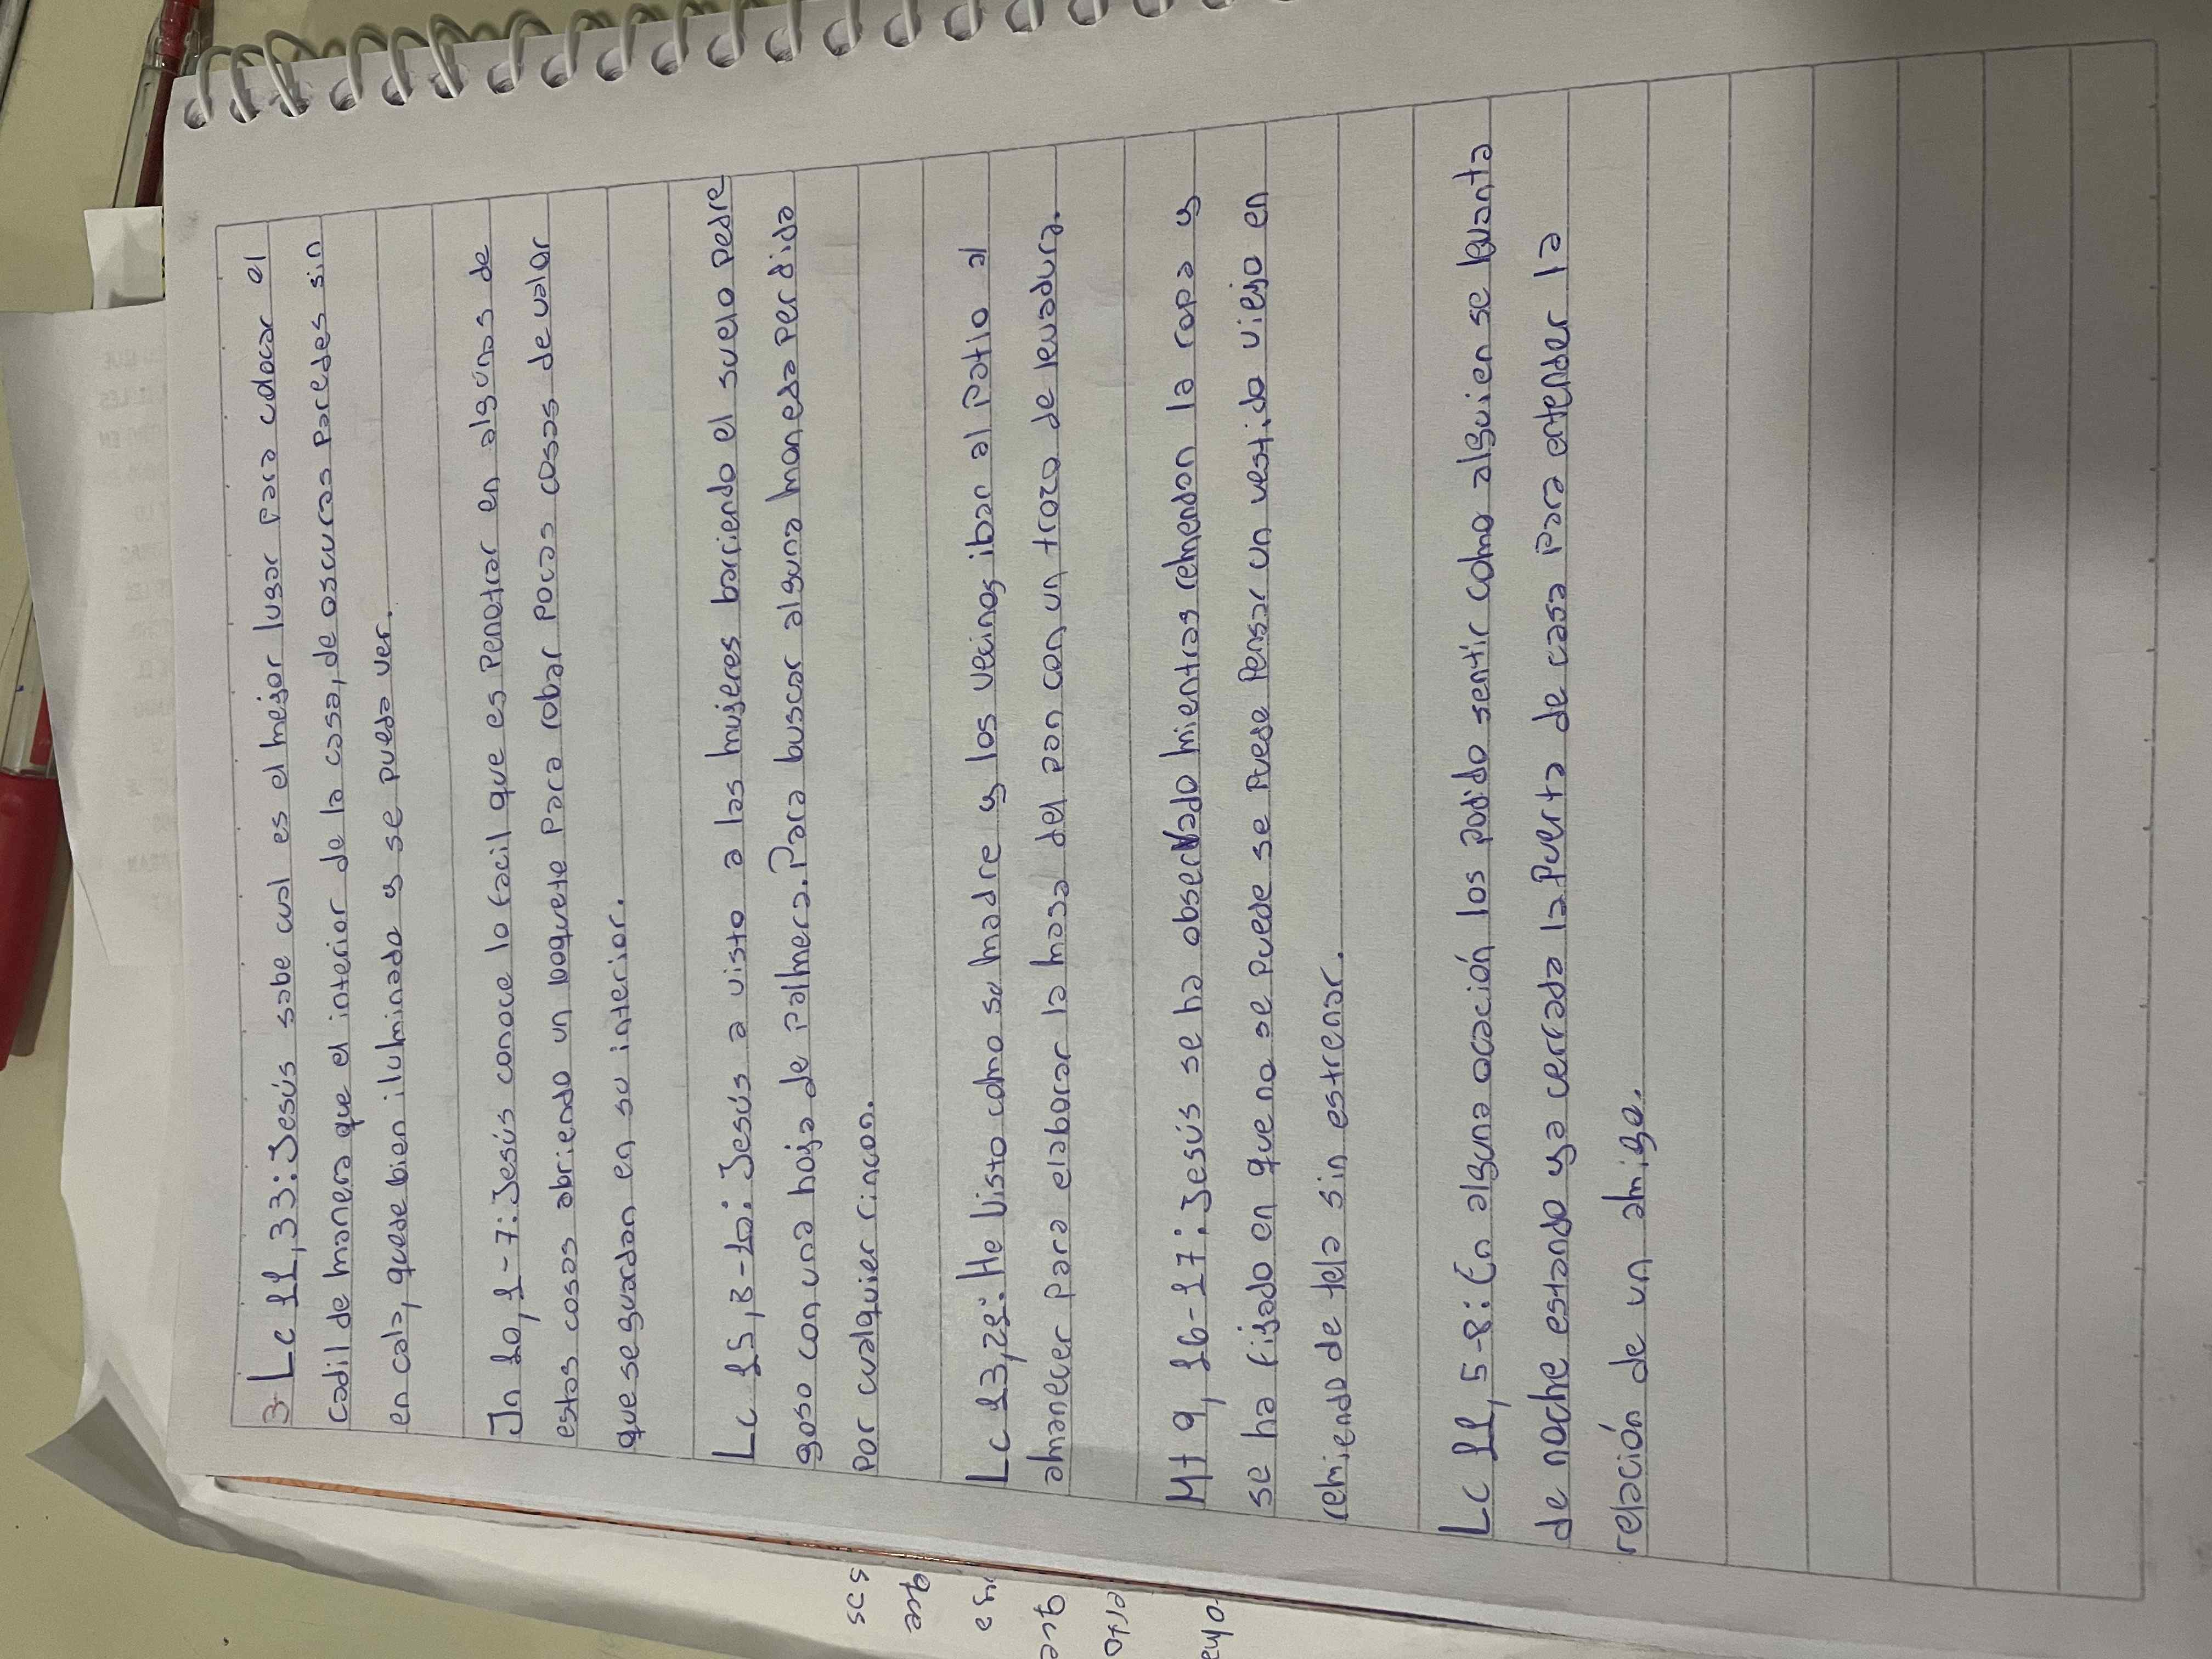 3- Lc 11,33: Jesús sabe cual es el mejor lugar para colocar el
cadil de manera que el interior de la casa, de oscuras paredes sin
en cala, quede bien iluminado y se pueda ver.
Jn 10,1-7: Jesús conoce lo facil que es Penatrar en algunas de
estas cosas abriendo un boquete para robar pocas cosas de valor
que se guardan en su interior.
Lc 15,8-10: Jesús a visto a las mujeres barriendo el suelo pedre
goso con una hoja de palmera. Para buscar alguna moneda perdida
por cualquier rincon.
Lc 13,21: He Visto como su madre y los vecinos iban al Patio al
amanecer para elaborar la masa del pan con un trozo de levadura.
Mt 9,16-17: Jesús se ha observado mientras remendan la ropa y
se ha fijado en que no se puede se puede Pensar un vestido viejo en
remiendo de tela sin estrenar.
Lc 11,5-8: En alguna ocación los podido sentir como alguien se levanta
de noche estando ya cerrada la Puerta de casa para entender la
relación de un amigo.
sus
que
que